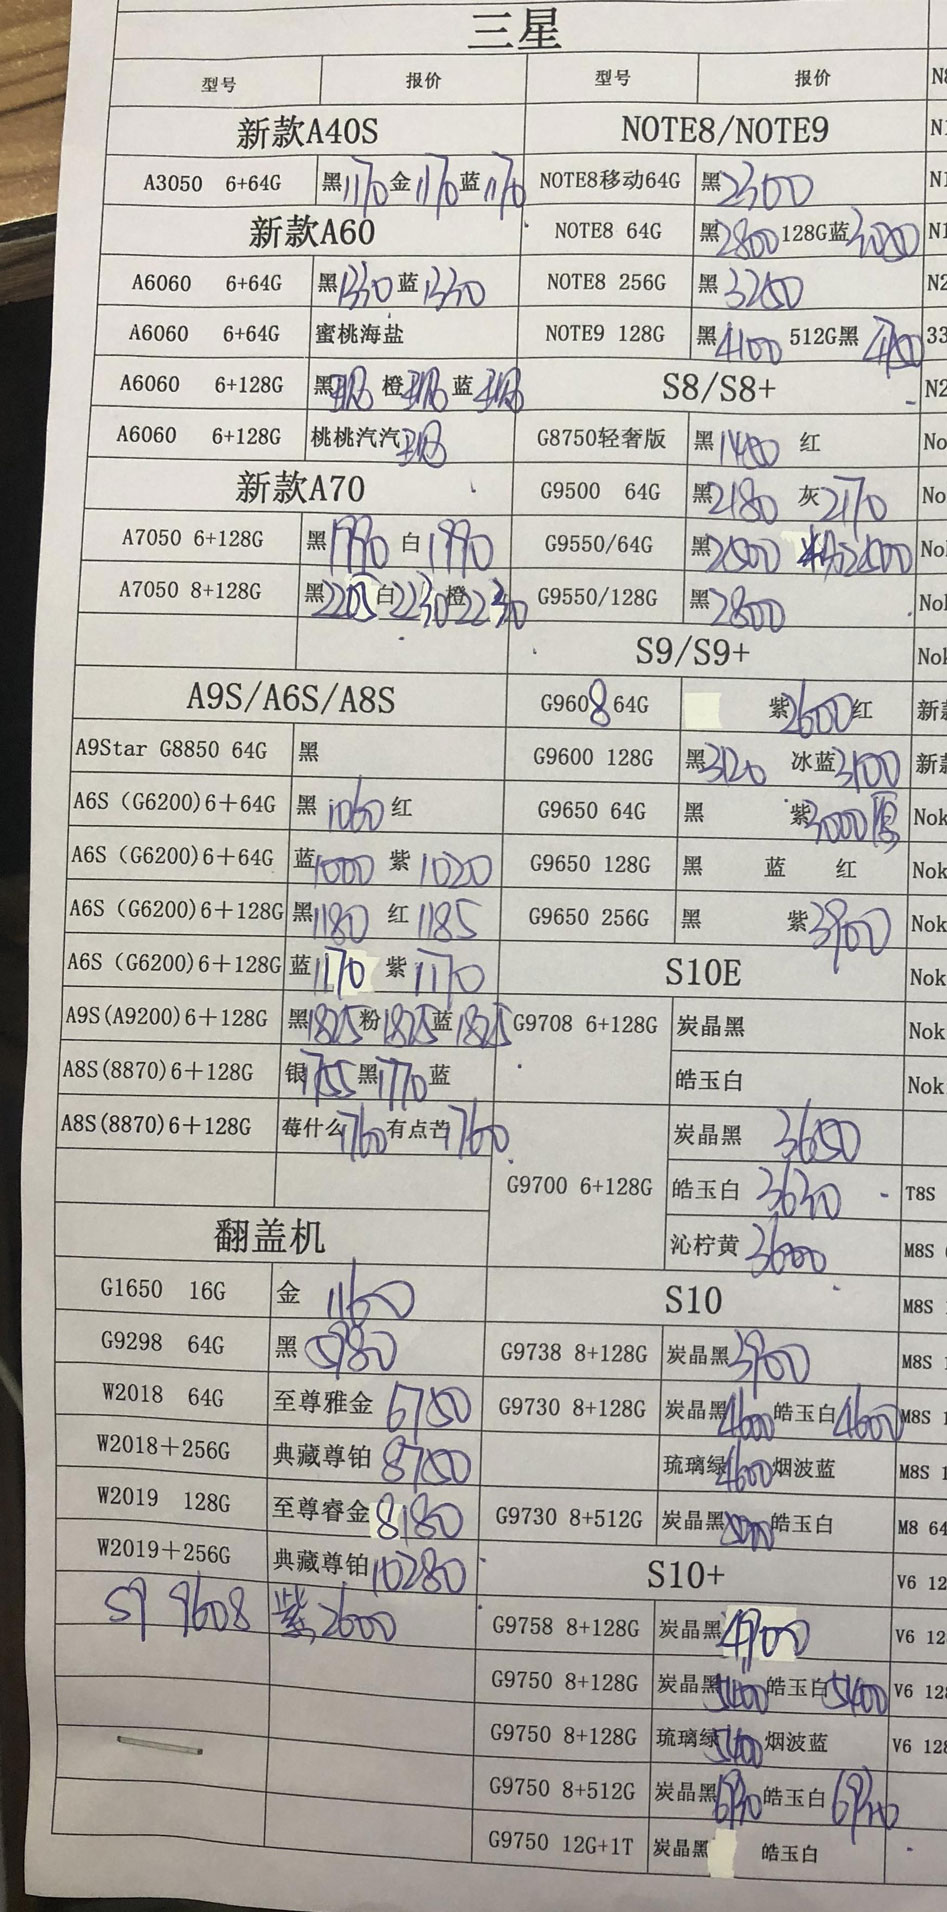 三星
型号 报价 型号 报价 N8
新款A40S NOTE8/NOTE9 N1
A3050 6+64G 黑1170 金1170 蓝1170 NOTE8移动64G 黑2300 N1
新款A60 NOTE8 64G 黑2800 128G蓝3080 N1
A6060 6+64G 黑1330 蓝1330 NOTE8 256G 黑3250 N2
A6060 6+64G 蜜桃海盐 NOTE9 128G 黑4100 512G黑 33
A6060 6+128G 黑 橙 蓝 S8/S8+ N2
A6060 6+128G 桃桃汽汽 G8750轻奢版 黑1480 红 No
新款A70 G9500 64G 黑2180 灰2170 No
A7050 6+128G 黑1990 白1990 G9550/64G 黑2500 粉2500 Nol
A7050 8+128G 黑2205 白2230 橙2230 G9550/128G 黑2800 Nol
S9/S9+ Nok
A9S/A6S/A8S G9608 64G 紫2600 红 新款
A9Star G8850 64G 黑 G9600 128G 黑3120 冰蓝3100 新款
A6S（G6200)6+64G 黑1060 红 G9650 64G 黑 紫3000 Nok
A6S（G6200)6+64G 蓝1000 紫1020 G9650 128G 黑 蓝 红 Nok
A6S（G6200)6+128G 黑1180 红1185 G9650 256G 黑 紫3900 Nok
A6S（G6200)6+128G 蓝1170 紫1170 S10E Nok
A9S(A9200)6+128G 黑1825 粉1825 蓝1825 G9708 6+128G 炭晶黑 Nok
A8S(8870)6+128G 银1755 黑1770 蓝 皓玉白 Nok
A8S(8870)6+128G 莓什么1760 有点芒1760 炭晶黑 3650
G9700 6+128G 皓玉白 3630 T8S
翻盖机 沁柠黄 3600 M8S
G1650 16G 金 1160 S10 M8S
G9298 64G 黑 5980 G9738 8+128G 炭晶黑3900 M8S 1
W2018 64G 至尊雅金 6750 G9730 8+128G 炭晶黑4600 皓玉白4600 M8S 1
W2018+256G 典藏尊铂 8750 琉璃绿4600 烟波蓝 M8S 1
W2019 128G 至尊睿金 8180 G9730 8+512G 炭晶黑 皓玉白 M8 64
W2019+256G 典藏尊铂10280 S10+ V6 12
S9 9608 紫2600 G9758 8+128G 炭晶黑4900 V6 12
G9750 8+128G 炭晶黑5400 皓玉白5400 V6 128
G9750 8+128G 琉璃绿5400 烟波蓝 V6 128
G9750 8+512G 炭晶黑 皓玉白
G9750 12G+1T 炭晶黑 皓玉白